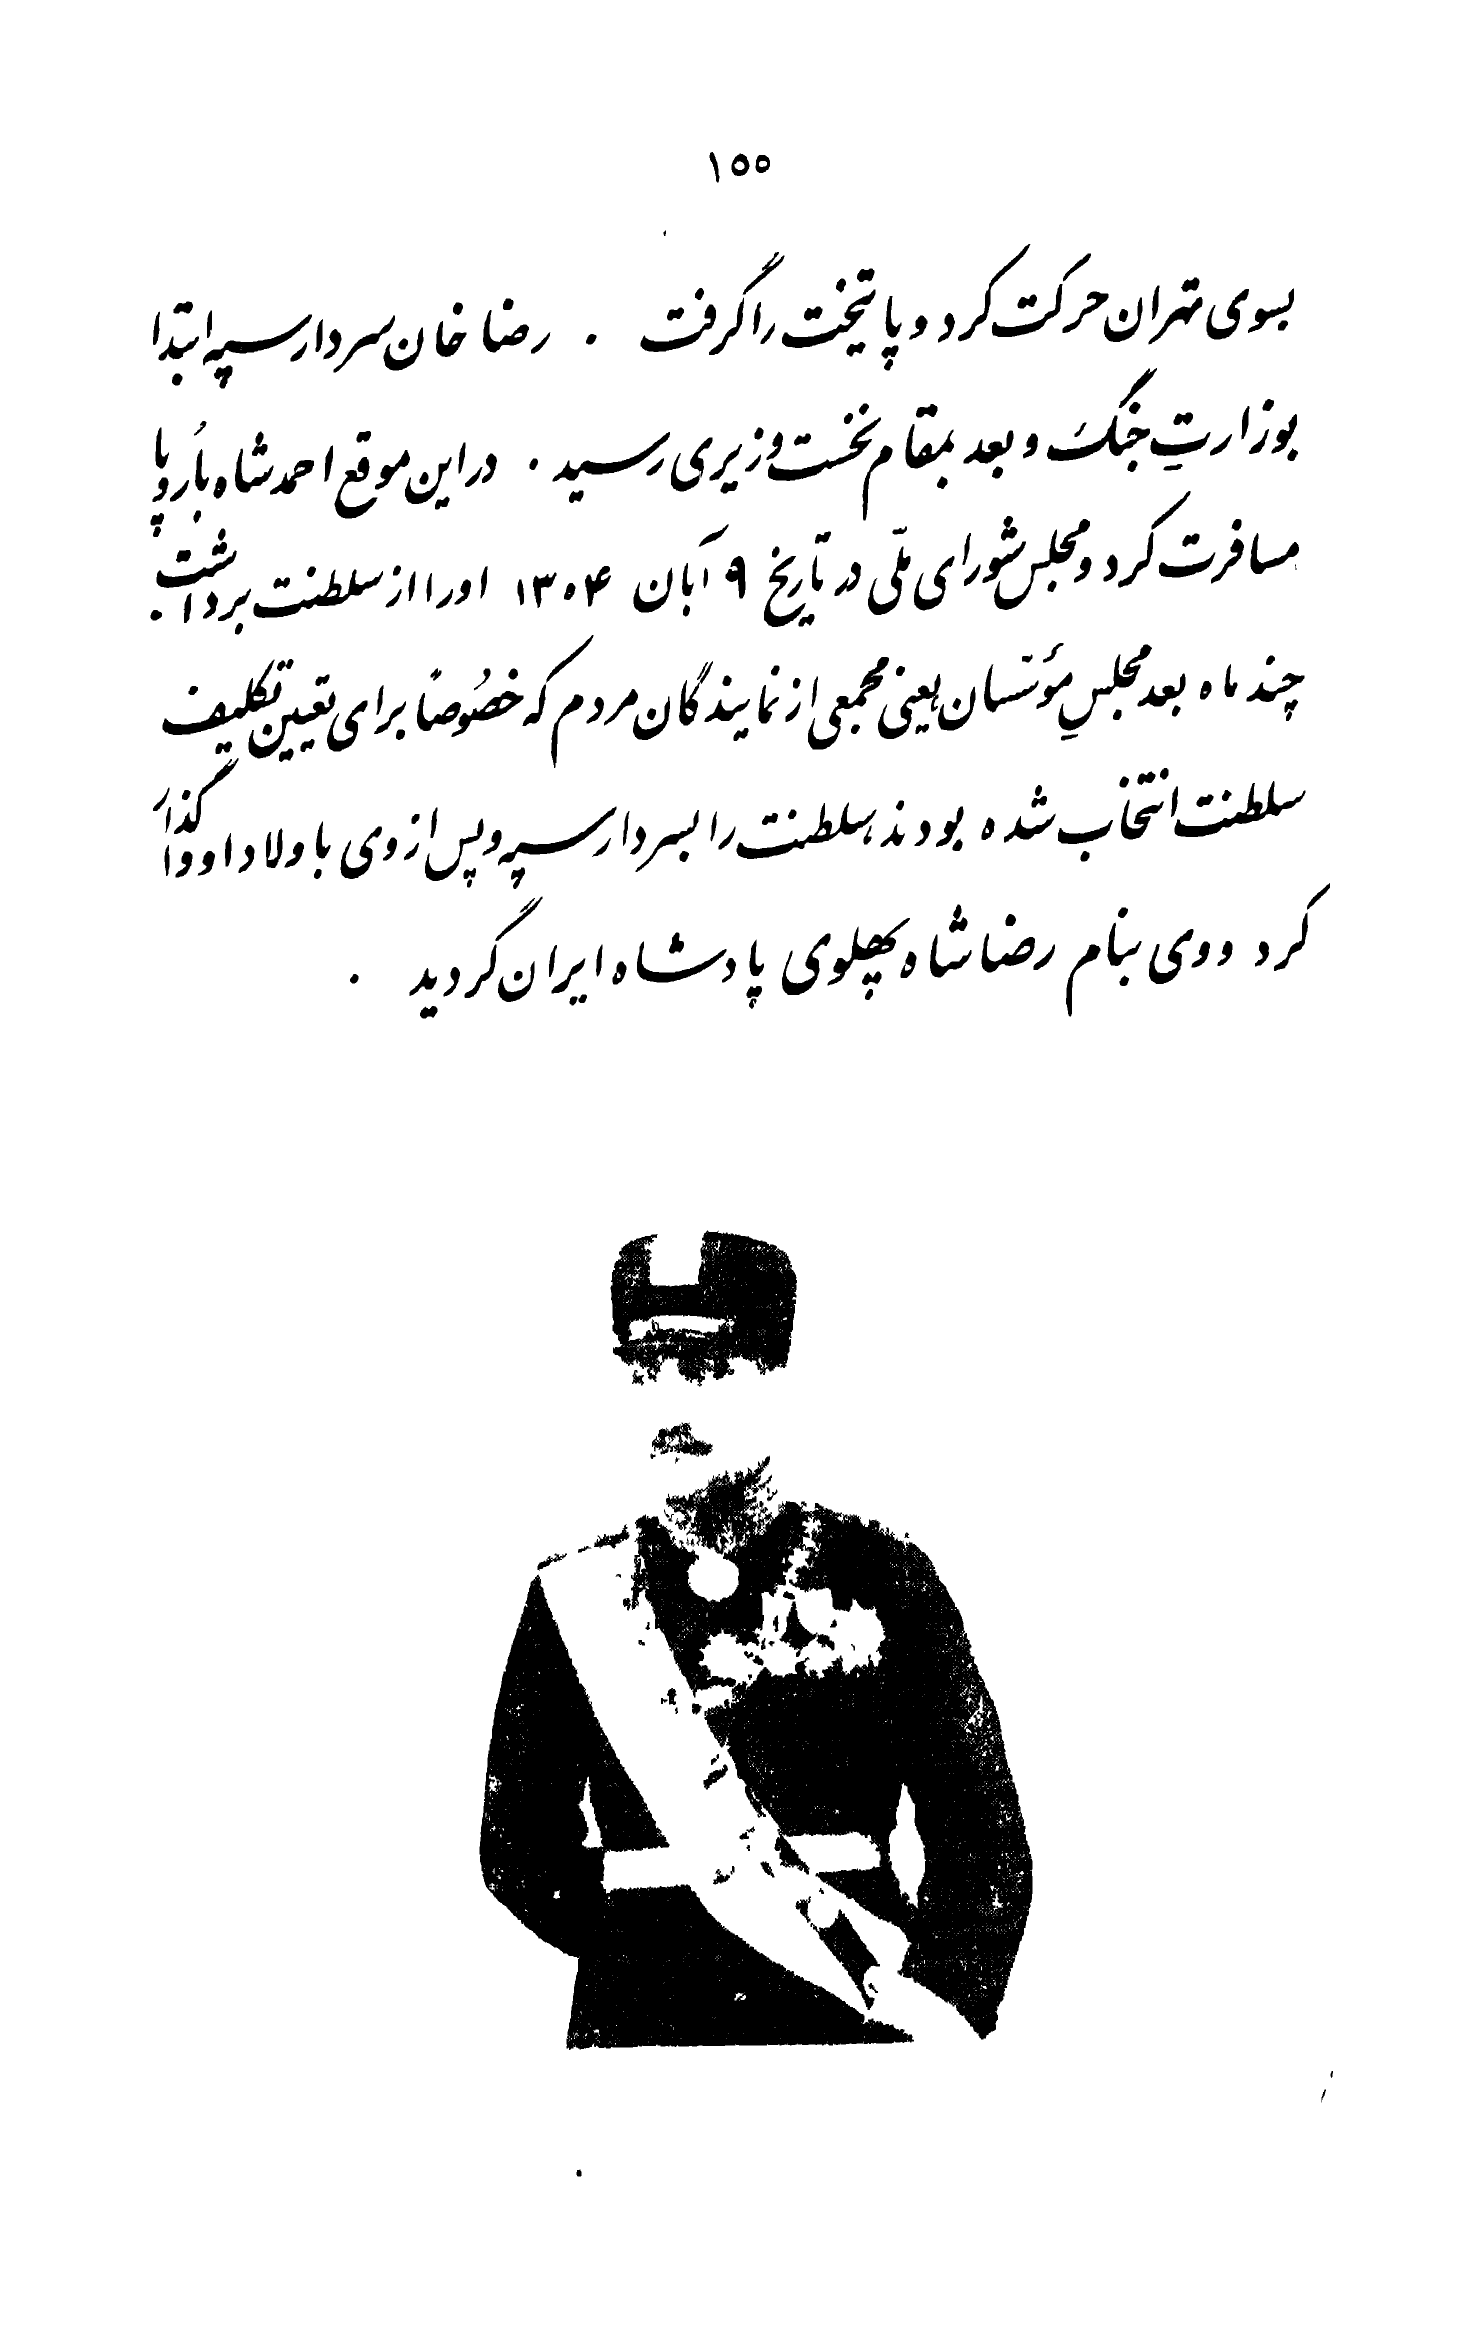 ۱۵۵
بسوی تهران حرکت کرد و پایتخت را گرفت . رضا خان سردار سپه ابتدا
بوزارتِ جنگ و بعد بمقام نخست وزیری رسید . در این موقع احمد شاه باُروپا
مسافرت کرد و مجلس شورای ملّی در تاریخ ۹ آبان ۱۳۰۴ او را از سلطنت برداشت .
چند ماه بعد مجلسِ مؤسّسان یعنی مجمعی از نمایندگان مردم که خصُوصاً برای تعیین تکلیف
سلطنت انتخاب شده بودند ، سلطنت را بسردار سپه و پس از وی باولاد او واگذار
کرد و وی بنام رضا شاه پهلوی پادشاه ایران گردید .